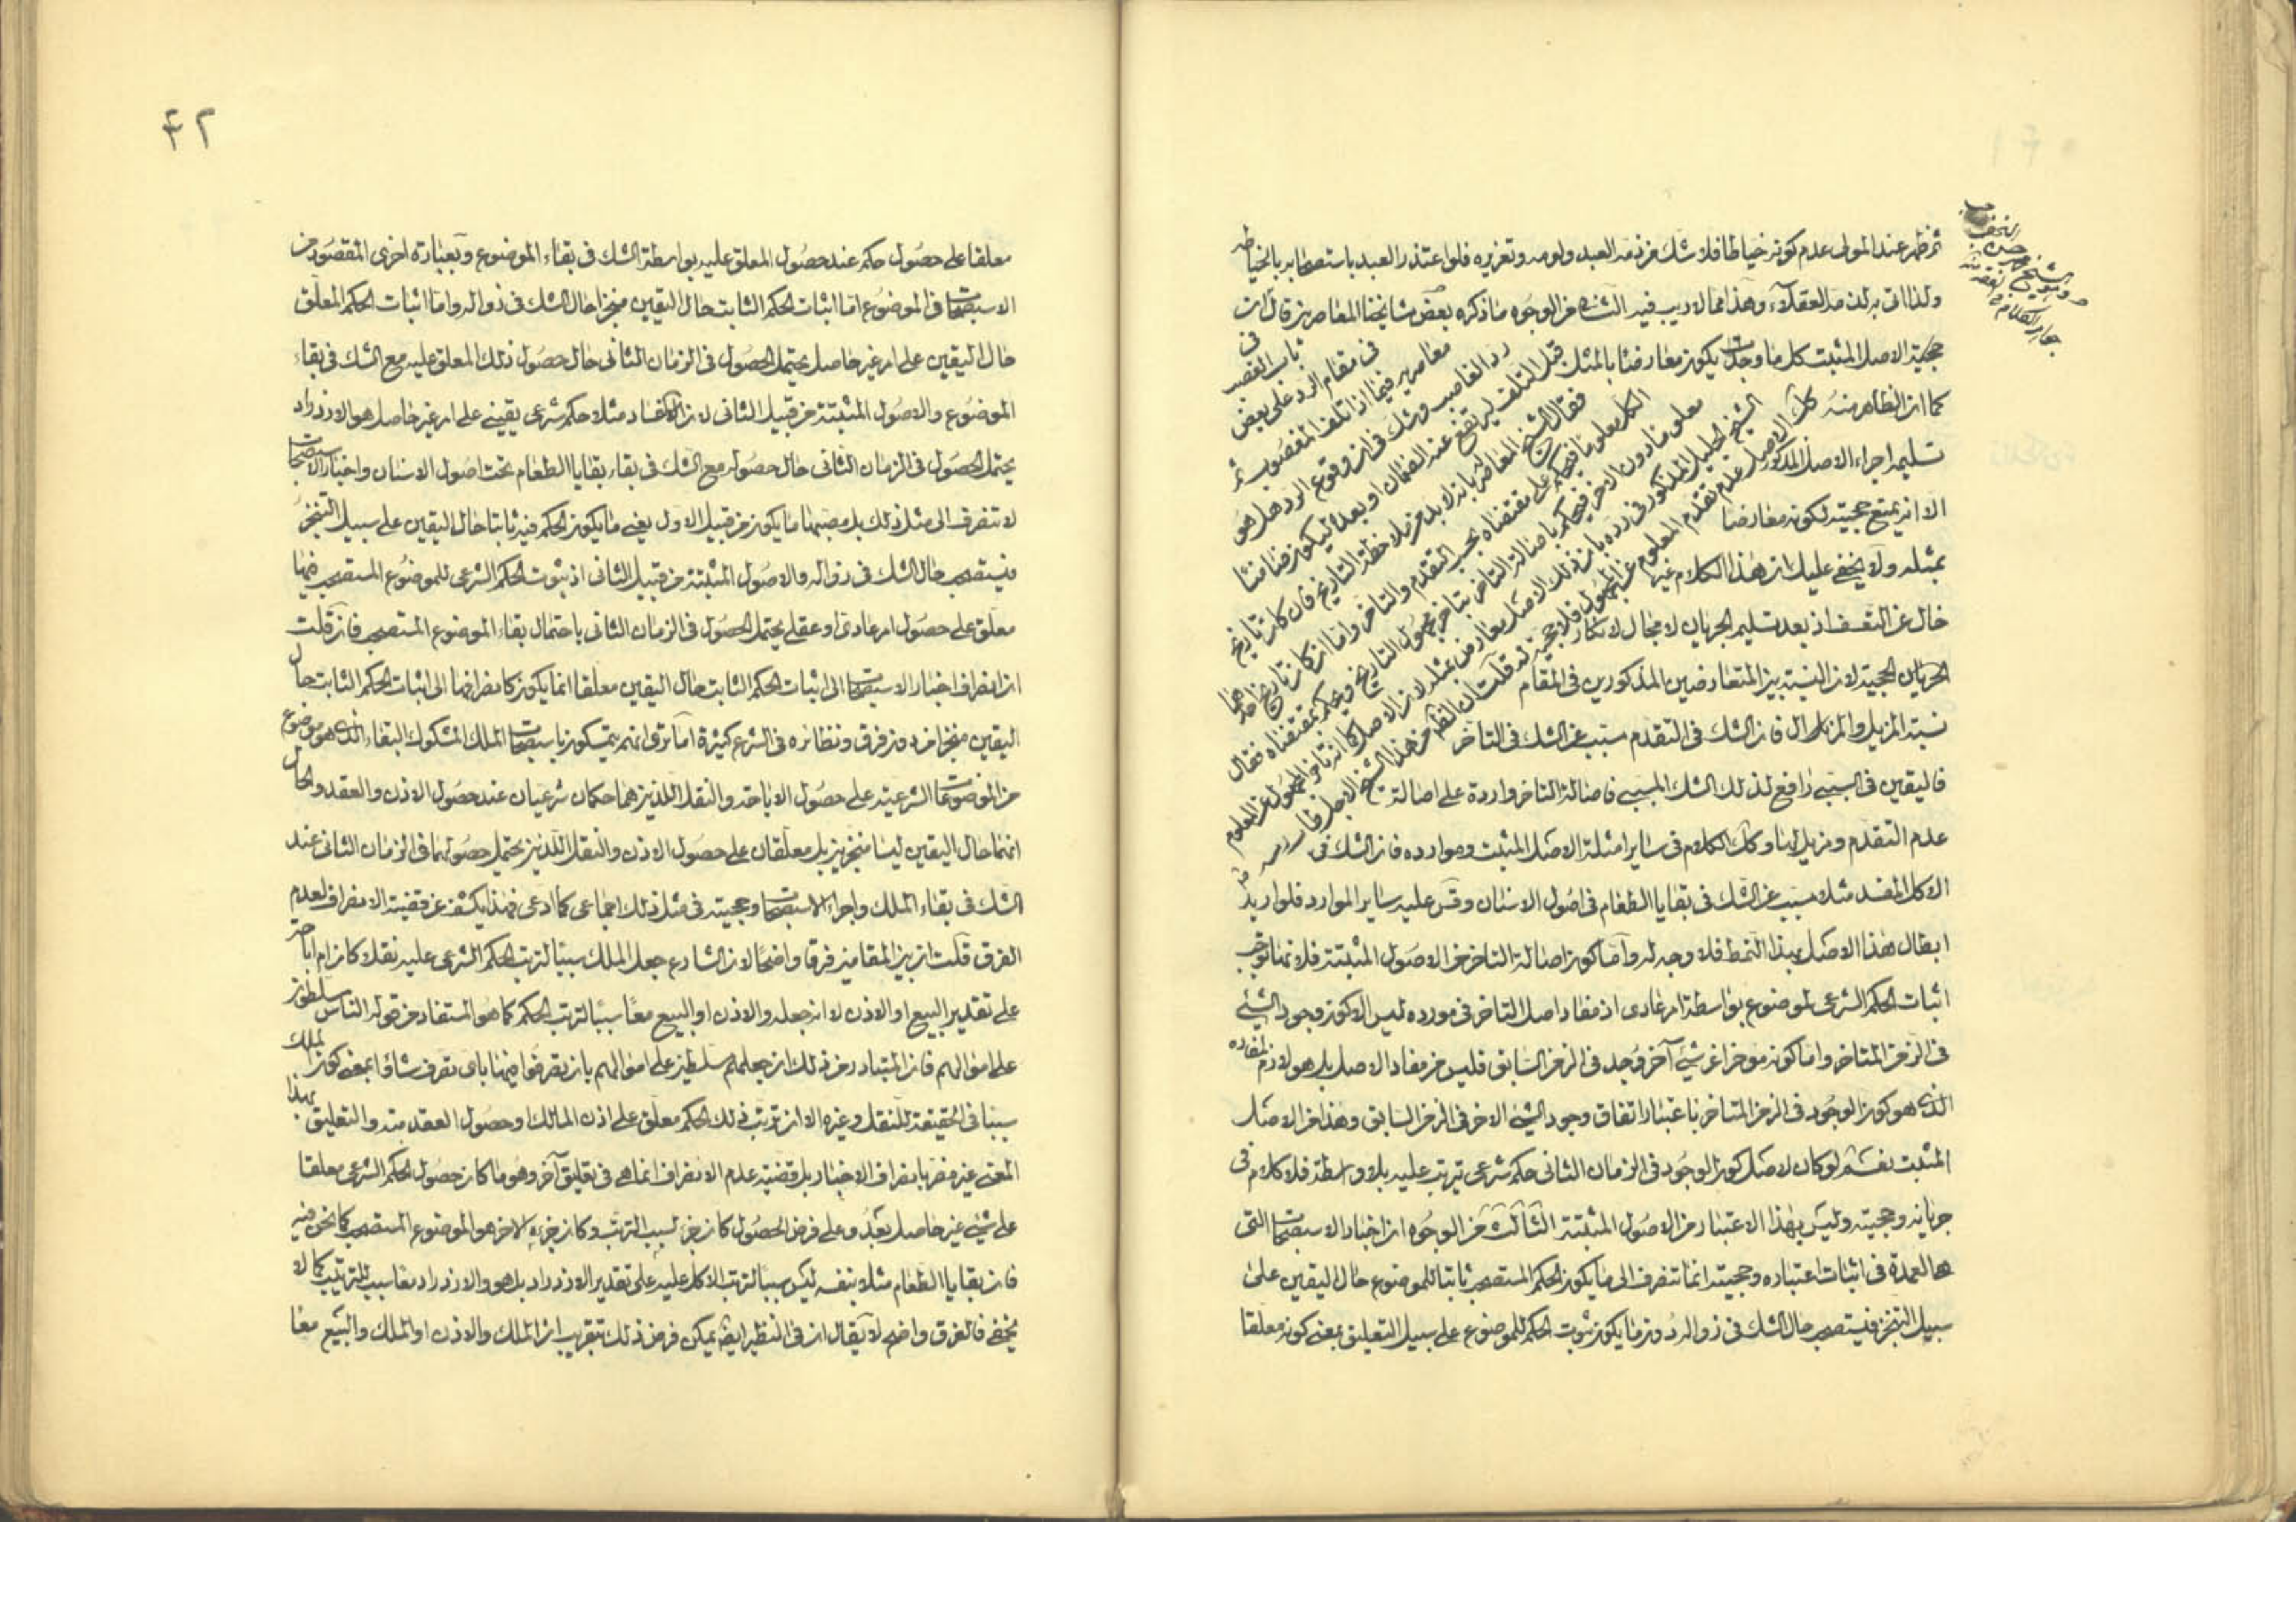 ثم ظهر عند المولى عدم كونه خياطا فلا شك من ذمه العبد ولومه وتعزيره فلو اعتذر العبد باستصحابه بالخياطه
ولذا اتى به لذمه العقلاء وهذا مما لا ريب فيه الثانى من الوجوه ما ذكره بعض مشايخنا المعاصرين قال ان
حجية الاصل المثبت كل ما وجدت يكون معارضا بالمثل
كما ان الظاهر منه
تسليم اجراء الاصل المذكور
الا انه يمتنع حجيته لكونه معارضا
بمثله ولا يخفى عليك ان هذا الكلام غير
خال عن التعسف اذ بعد تسليم الجريان لا مجال لانكار
الجريان الحجية لان النسبة بين المتعارضين المذكورين فى المقام
نسبة المزيل والمزال فان الشك فى التقدم مسبب عن الشك فى التاخر
فاليقين فى السببى رافع لذلك الشك المسببى فاصالة التاخر واردة على اصالة
عدم التقدم ومزيل لها وكك الكلام فى ساير امثلة الاصل المثبت وموارده فان الشك فى
الاكل المفسد مثلا مسبب عن الشك فى بقايا الطعام فى اصول الاسنان وقس عليه ساير الموارد فلو اريد
ابطال هذا الاصل بهذا النمط فلا وجه له واما كون اصالة التاخر من الاصول المثبتة فلانها توجب
اثبات الحكم الشرعى لموضوع بواسطة امر عادى اذ مفاد اصل التاخر فى مورده ليس الا كون وجود الشئ
فى الزمن المتاخر واما كونه موخرا عن شئ آخر وجد فى الزمن السابق فليس من مفاد الاصل بل هو لازم لمفاده
الذى هو كون الوجود فى الزمن المتاخر باعتبار اتفاق وجود الشئ الاخر فى الزمن السابق وهذا من الاصل
المثبت نعم لو كان لاصل كون الوجود فى الزمان الثانى حكم شرعى يترتب عليه بلا واسطة فلا كلام فى
جريانه وحجيته وليس بهذا الاعتبار من الاصول المثبتة الثالث من الوجوه ان اخبار الاستصحاب التى
هى العمدة فى اثبات اعتباره وحجيته انما تنصرف الى ما يكون الحكم المستصحب ثابتا للموضوع حال اليقين على
سبيل التنجز فيستصحب حال الشك فى زواله دون ما يكون ثبوت الحكم للموضوع على سبيل التعليق بمعنى كونه معلقا
فى باب الغصب
فى مقام الرد على بعض
معاصريه فيما اذا تلف المغصوب ثم
رد الغاصب وشك فى ان وقوع الرد هل هو
قبل التلف ليرتفع عنه الضمان او بعده ليكون ضامنا
فقال الشيخ المعاصر بانه لا بد من ملاحظة التاريخ فان كان تاريخ
الكل معلوما فيحكم على مقتضاه بحسب التقدم والتاخر واما ان كان تاريخ احدهما
معلوما دون الاخر فيحكم باصالة التاخر بتاخر مجهول التاريخ ويحكم بمقتضاه فقال
الشيخ الجليل المذكور فى رده بان ذلك الاصل معارض بمثله لان الاصل كما انه تاخر المجهول عن المعلوم
كك الاصل عدم تقدم المعلوم عن المجهول فلا حجية له قلت ان الظاهر من هذا الشيخ الاجل
النجفى
الشيخ محمد حسن
صاحب جواهر الكلام
۴۲
معلقا على حصول حكم عند حصول المعلق عليه بواسطة الشك فى بقاء الموضوع وبعبارة اخرى المقصود من
الاستصحاب فى الموضوع اما اثبات الحكم الثابت حال اليقين منجزا حال الشك فى زواله واما اثبات الحكم المعلق
حال اليقين على امر غير حاصل يحتمل الحصول فى الزمان الثانى حال حصول ذلك المعلق عليه مع الشك فى بقاء
الموضوع والاصول المثبتة من قبيل الثانى لان الافساد مثلا حكم شرعى يقينى على امر غير حاصل هو الازدراد
يحتمل الحصول فى الزمان الثانى حال حصوله مع الشك فى بقاء بقايا الطعام تحت اصول الاسنان واخبار الاستصحاب
لا تنصرف الى مثل ذلك بل مصبها ما يكون من قبيل الاول يعنى ما يكون الحكم فيه ثابتا حال اليقين على سبيل التنجز
فيستصحب حال الشك فى زواله والاصول المثبتة من قبيل الثانى اذ ثبوت الحكم الشرعى للموضوع المستصحب فيها
معلق على حصول امر عادى او عقلى يحتمل الحصول فى الزمان الثانى باحتمال بقاء الموضوع المستصحب فان قلت
ان انصراف اخبار الاستصحاب الى اثبات الحكم الثابت حال اليقين معلقا انما يكون كانصرافها الى اثبات الحكم الثابت حال
اليقين منجزا من دون فرق ونظائره فى الشرع كثيرة اما ترى انهم يتمسكون باستصحاب الملك المشكوك البقاء الذى هو موضوع
من الموضوعات الشرعية على حصول الاباحة والنقل اللذين هما حكمان شرعيان عند حصول الاذن والعقد والحال
انهما حال اليقين ليسا منجزين بل معلقان على حصول الاذن والنقل اللذين يحتمل حصولهما فى الزمان الثانى عند
الشك فى بقاء الملك واجراء الاستصحاب وحجيته فى مثل ذلك اجماعى كما ادعى فهذا يكشف عن قضية الانصراف لعدم
الفرق قلت ان بين المقامين فرقا واضحا لان الشارع جعل الملك سببا لترتب الحكم الشرعى عليه نقلا كان ام اباحة
على تقدير البيع او الاذن لا انه جعله والاذن او البيع معا سببا لترتب الحكم كما هو المستفاد من قوله الناس مسلطون
على اموالهم فان المتبادر من ذلك ان جعلهم مسلطين على اموالهم بان يتصرفوا فيها باى تصرف شاؤا بمعنى كون الملك
سببا فى الحقيقة للنقل وغيره الا ان ترتب ذلك الحكم معلق على اذن المالك او حصول العقد منه والتعليق بهذا
المعنى غير مضر بانصراف الاخبار بل قضية عدم الانصراف انما هى فى تعليق آخر وهو ما كان حصول الحكم الشرعى معلقا
على شئ غير حاصل بعد وعلى فرض الحصول كان جزء لسبب الترتب وكان جزءه الاخر هو الموضوع المستصحب كما نحن فيه
فان بقايا الطعام مثلا بنفسه ليس سببا لترتب الاكل عليه على تقدير الازدراد بل هو والازدراد معا سبب للترتيب كما لا
يخفى فالفرق واضح لا يقال ان فى النظير ايضا يمكن فرض ذلك بتقريب ان الملك والاذن او الملك والبيع معا